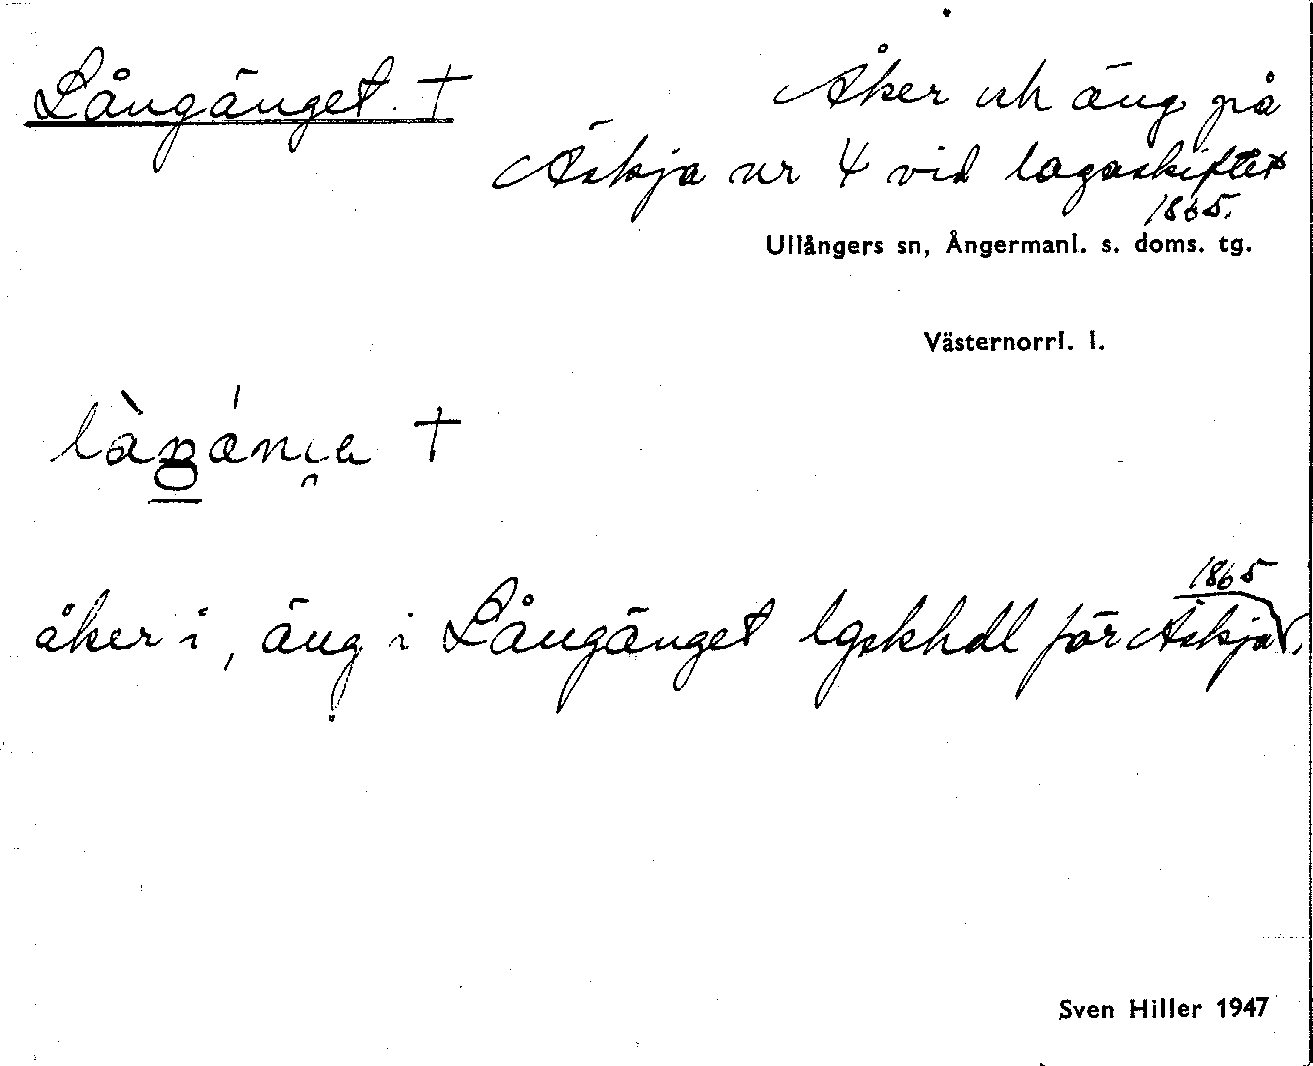 Långänget. †
Åker och äng på
Äskja nr 4 vid lagaskiftet
1865.
Ullångers sn, Ångermanl. s. doms. tg.
Västernorrl. l.
†
åker i, äng i Långänget lgskhdl för Äskja 1865.
Sven Hiller 1947